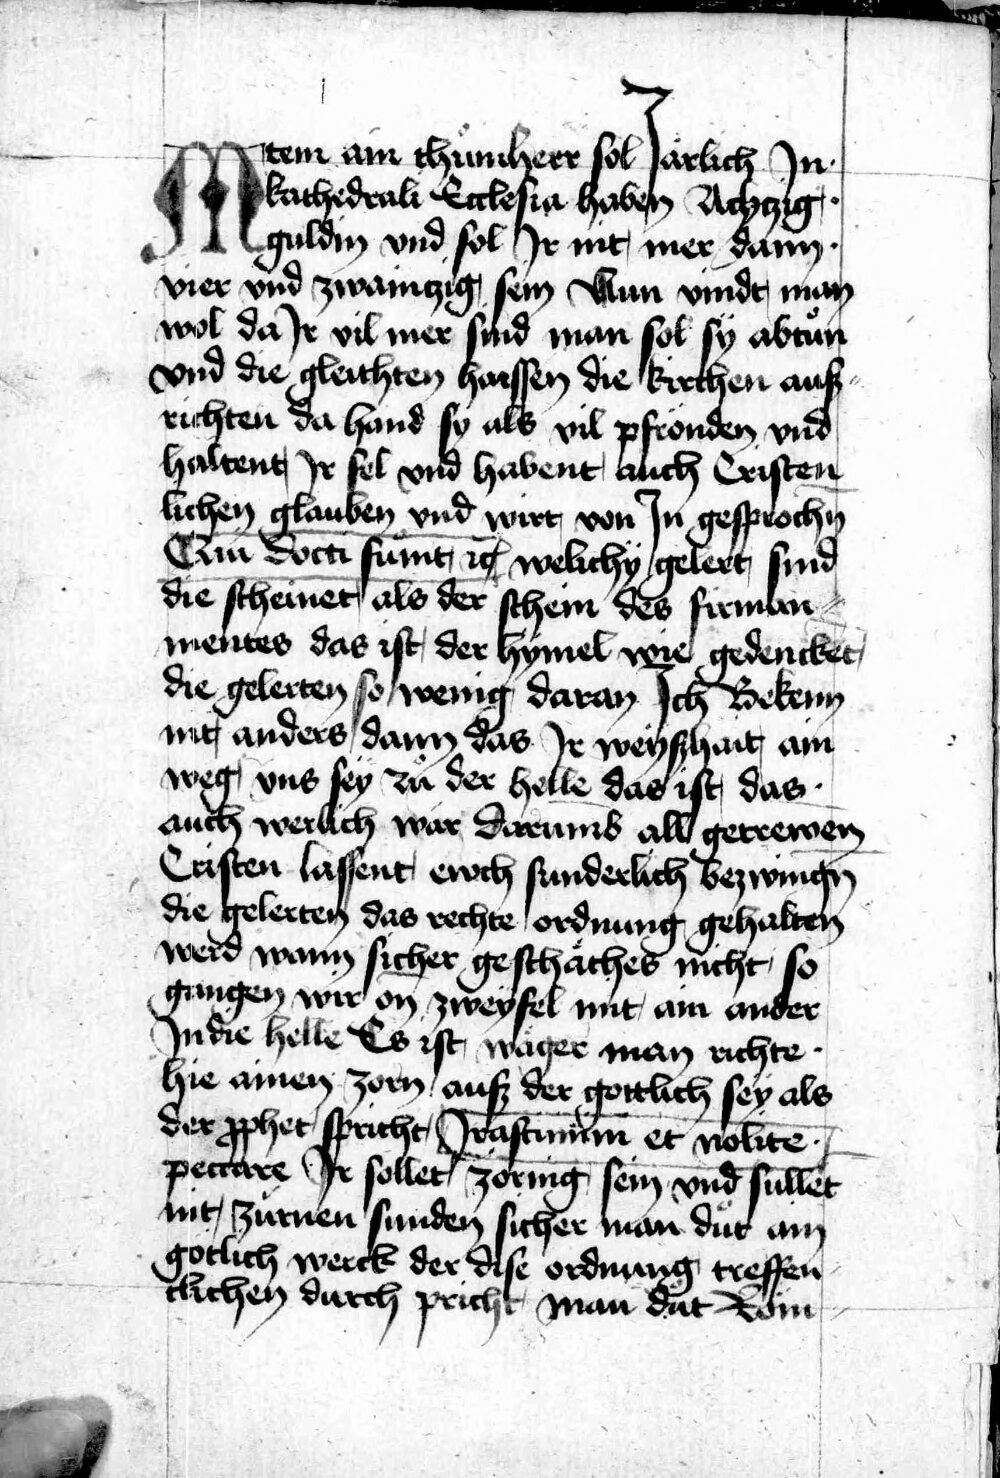 Item ain thůmherr sol Järlich In
kathedrali Ecclesia haben Achtzig
guldin vnd sol Ir nit mer dann
vier vnd zwaintzig sein Nun vindt man
wol da Ir vil mer sind man sol sÿ abtůn
vnd die gleichten haissen die kirchen auß
richten da hand sy als vil pfrönden vnd
haltent Ir sel vnd habent auch Cristen
lichen glauben vnd wirt von In gesprochn
Qui docti fuint rc̄ welichÿ gelert sind
die scheinet als der schein des firman
mentes das ist der hÿmel wie gedencket
die gelerten so wenig daran Ich Bekenn
nit anders dann das Ir weyßhait ain
weg vns seÿ zů der helle das ist das
auch werlich war Darumb all getrewen
Cristen lassent ewch sunderlich bezwingn
die gelerten das rechte ordnung gehalten
werd wann sicher geschäches nicht so
gangen wir on zweyfel mit ain ander
In die helle Es ist wäger man richte
hie ainen zorn auß der gottlich seÿ als
der pphet spricht Irascimini et nolite
peccare Ir sollet zornig sein vnd sullet
nit zürnen sunden sicher man důt ain
gotlich werck der dise ordnung treffen
clichen durch pricht man důt kain